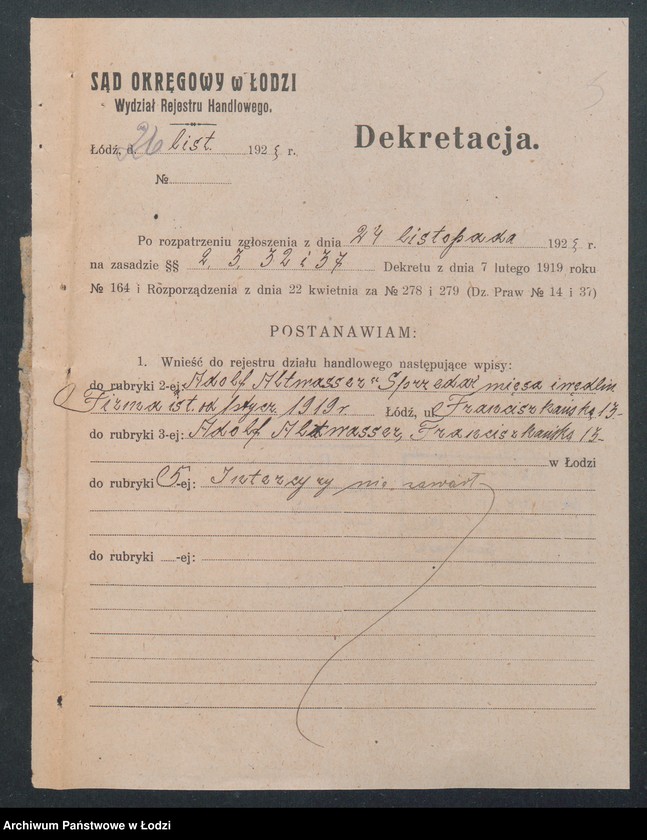 SĄD OKRĘGOWY w ŁODZI
Wydział Rejestru Handlowego.
Łódź, d. 26 list. 192 r.
№
Dekretacja.
Po rozpatrzeniu zgłoszenia z dnia 24 listopada 192 r.
na zasadzie §§ 2, 3, 32 i 37 Dekretu z dnia 7 lutego 1919 roku
№ 164 i Rozporządzenia z dnia 22 kwietnia za № 278 i 279 (Dz. Praw № 14 i 37)
POSTANAWIAM:
1. Wnieść do rejestru działu handlowego następujące wpisy:
do rubryki 2-ej: „Adolf Altwasser" Sprzedaż mięsa i wędlin
Firma ist. od 1 stycz. 1919 r. Łódź, ul. Franciszkańska 13-
do rubryki 3-ej: Adolf Altwasser, Franciszkańska 13-
w Łodzi
do rubryki 5-ej: Intercyzy nie zawarł
do rubryki -ej:
Archiwum Państwowe w Łodzi